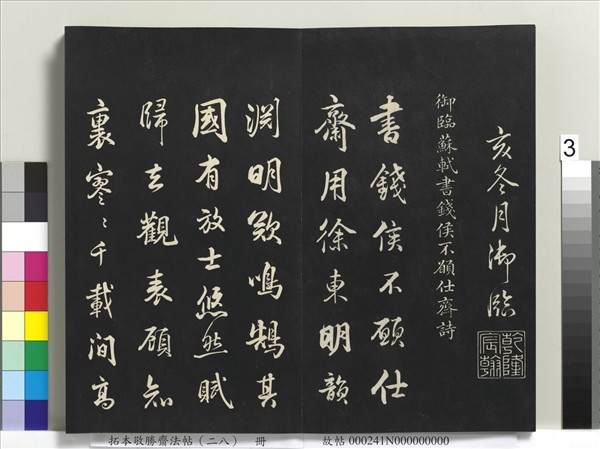 亥冬月御臨
乾隆宸翰
御臨蘇軾書錢侯不願仕齋詩
書錢侯不願仕
齋用徐東明韻
淵明鳴鵠其
國有放士悠然賦
歸去觀表願知
裏寥〻千載間高
拓本敬勝齋法帖(二八) 冊 故帖 000241N000000000
3